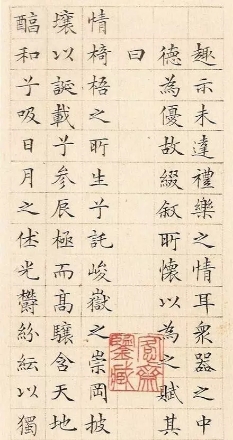 趣示未達禮樂之情耳衆器之中
德為優故綴叙所懷以為之賦其
曰
情椅梧之所生兮託峻嶽之崇岡披
壤以誕載兮參辰極而高驤含天地
醕和兮吸日月之休光欝紛紜以獨
鑒藏